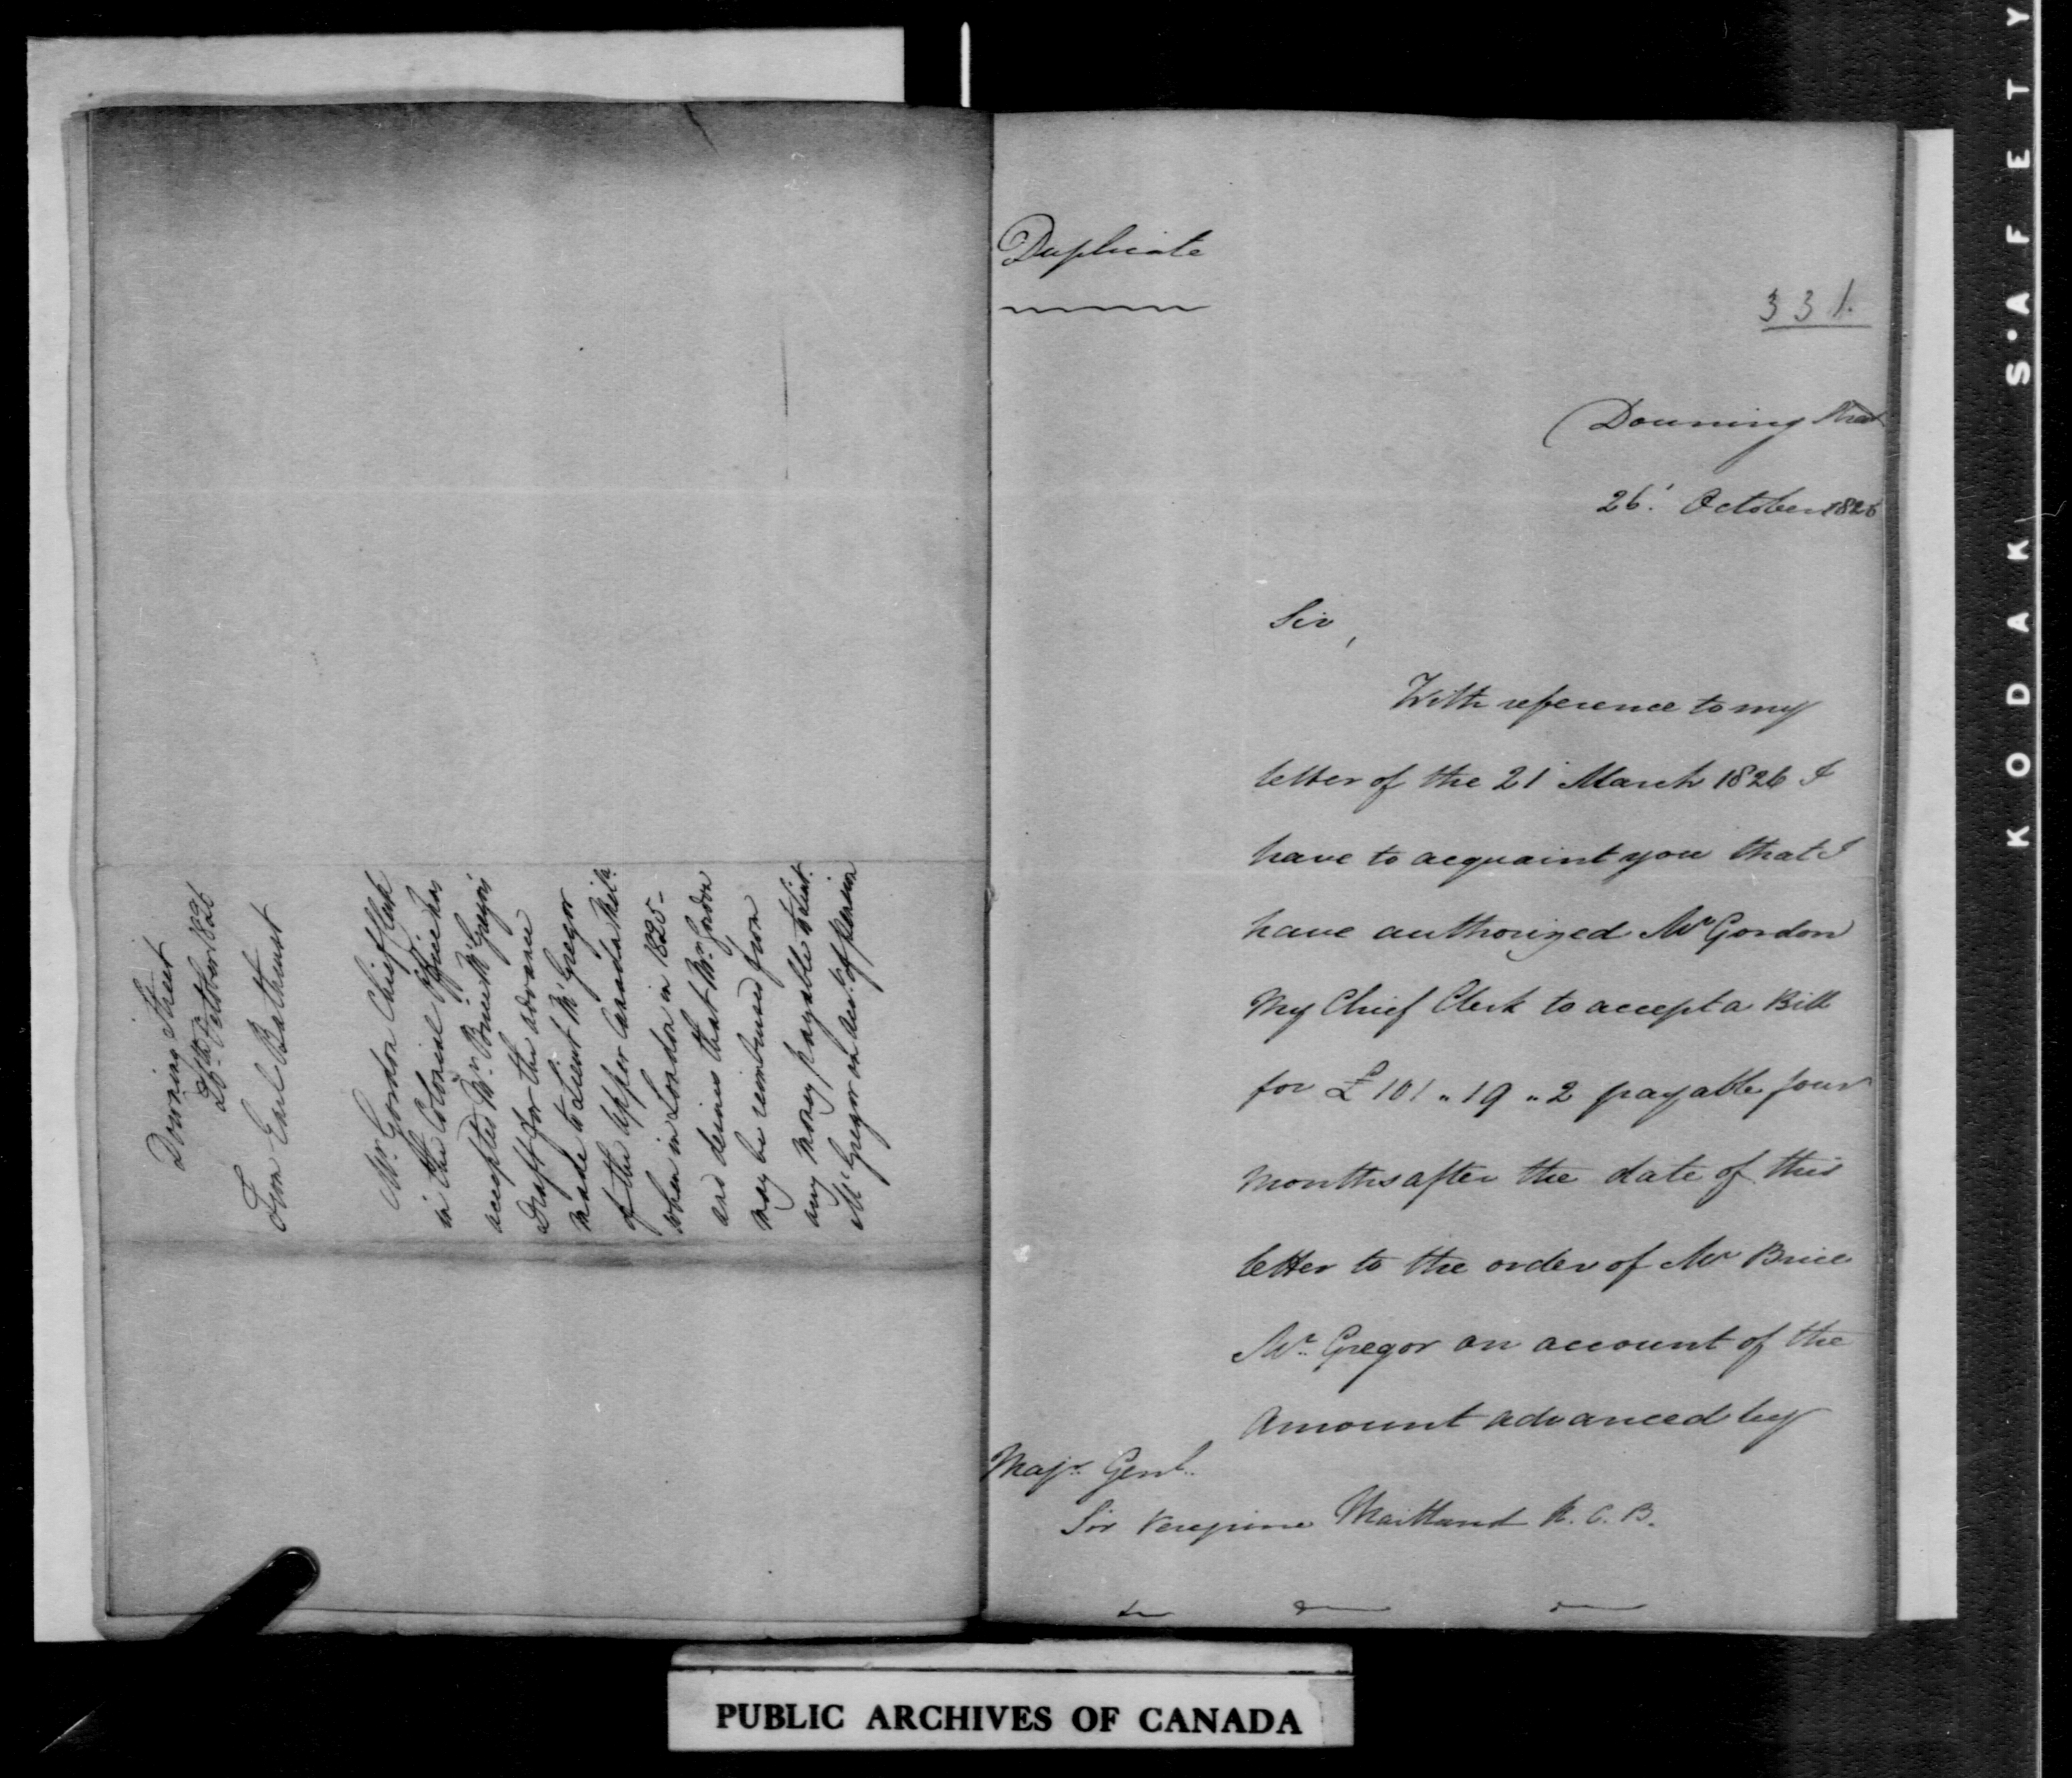 Downing Street
26th October 1826
From Earl Bathurst
Mr Gordon Chief Clerk
in the Colonial Office has
accepted Mr Brice Mc Gregor's
Draft for the advance
made to Lieut Mc Gregor
of the Upper Canada Mila
when in London in 1825-
and desires that Mr Gordon
may be reimbursed from
any money payable to Lieut.
Mc Gregor on acct. of pension
Duplicate
331.
Downing Street
26' October 1826
Sir,
With reference to my
letter of the 21 March 1826 I
have to acquaint you that I
have authorized Mr Gordon
My Chief Clerk to accept a Bill
for £101 " 19 " 2 payable four
months after the date of this
letter to the order of Mr Brice
Mc Gregor on account of the
Amount advanced by
Majr. Genl.
Sir Peregrine Maitland K. C. B.
PUBLIC ARCHIVES OF CANADA
KODAK S'AFETY